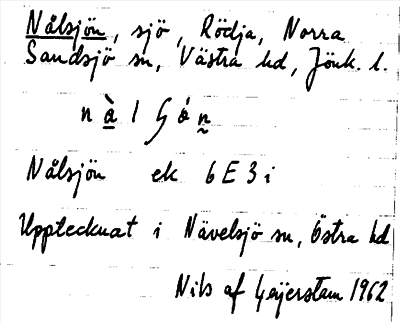 Nålsjön, sjö, Rödja, Norra
Sandsjö sn, Västra hd, Jönk. l.
Nålsjön ek 6E3i
Upptecknat i Nävelsjö sn, Östra hd
Nils af Geijerstam 1962